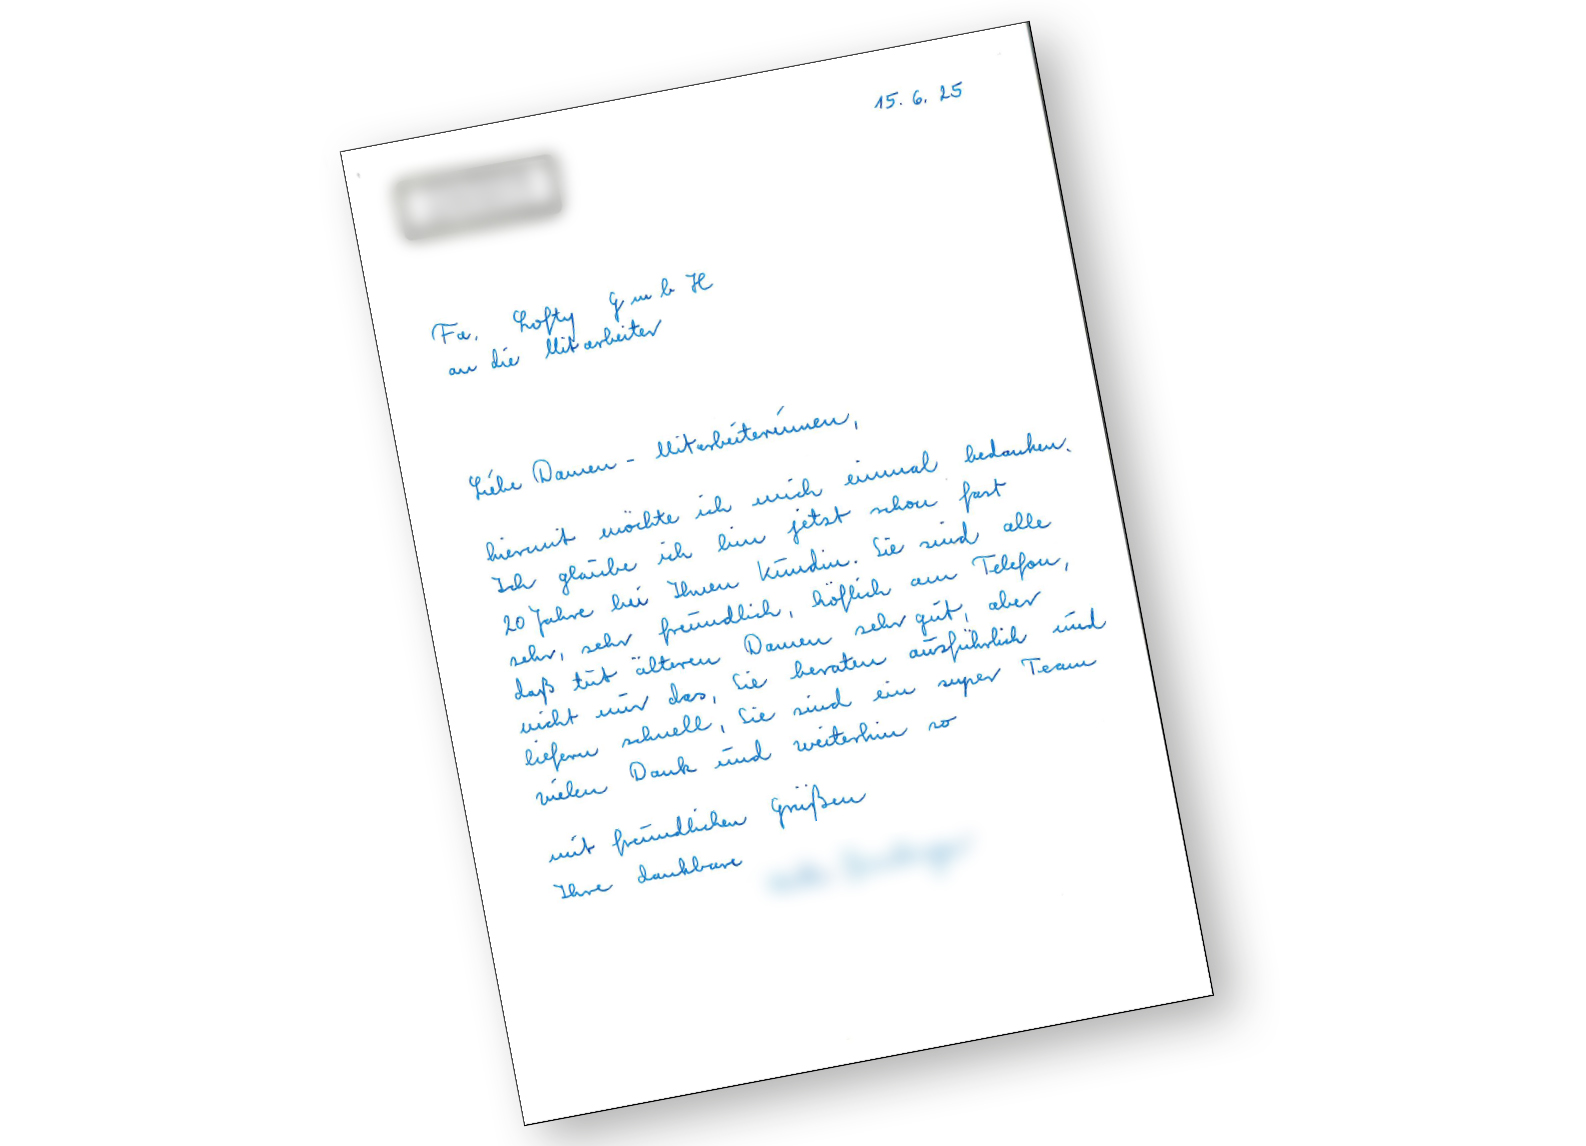 15. 6. 25
Fa. Lofty GmbH
an die Mitarbeiter
Liebe Damen - Mitarbeiterinnen,
hiermit möchte ich mich einmal bedanken.
Ich glaube ich bin jetzt schon fast
20 Jahre bei Ihnen Kundin. Sie sind alle
sehr, sehr freundlich, höflich am Telefon,
daß tut älteren Damen sehr gut, aber
nicht nur das, Sie beraten ausführlich und
liefern schnell, Sie sind ein super Team
vielen Dank und weiterhin so
mit freundlichen Grüßen
Ihre dankbare